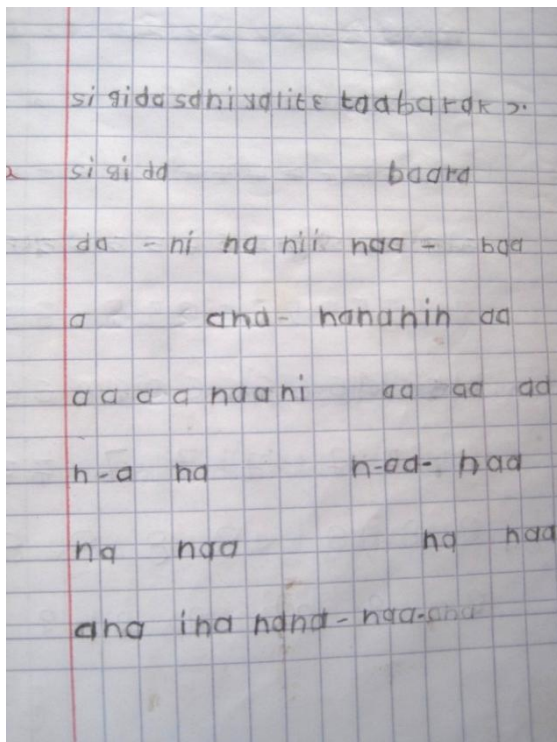 si gida sani yalitɛ taabarakɔ.
si si da baara
da - ni na nii naa - baa
a ana - nananin aa
a a a a naani aa aa aa
n-a na n-aa- naa
na naa na naa
ana ina nana - naa-ana